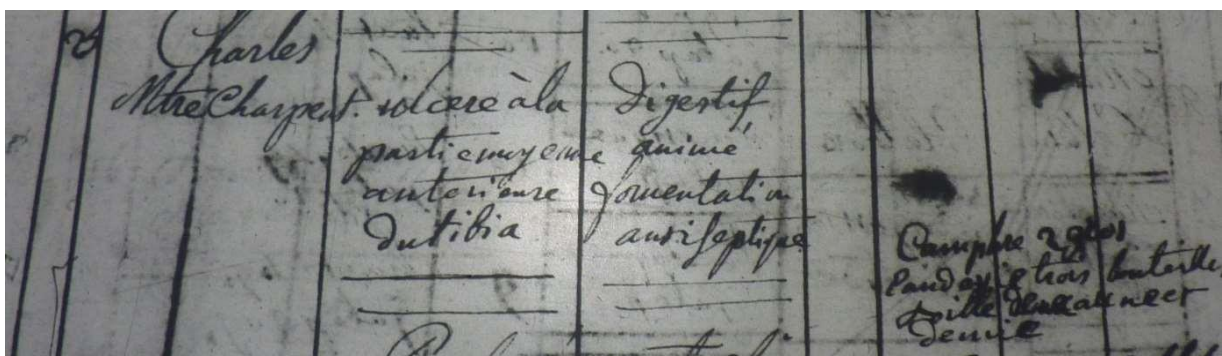 2
Charles
Mtre Charpent.
ulcere à la
partie moyenne
anterieure
du tibia
Digestif
animé
fomentation
antiseptique
Camphre 2 gros
Eau de vie trois bouteille
toille deux aune et
demie